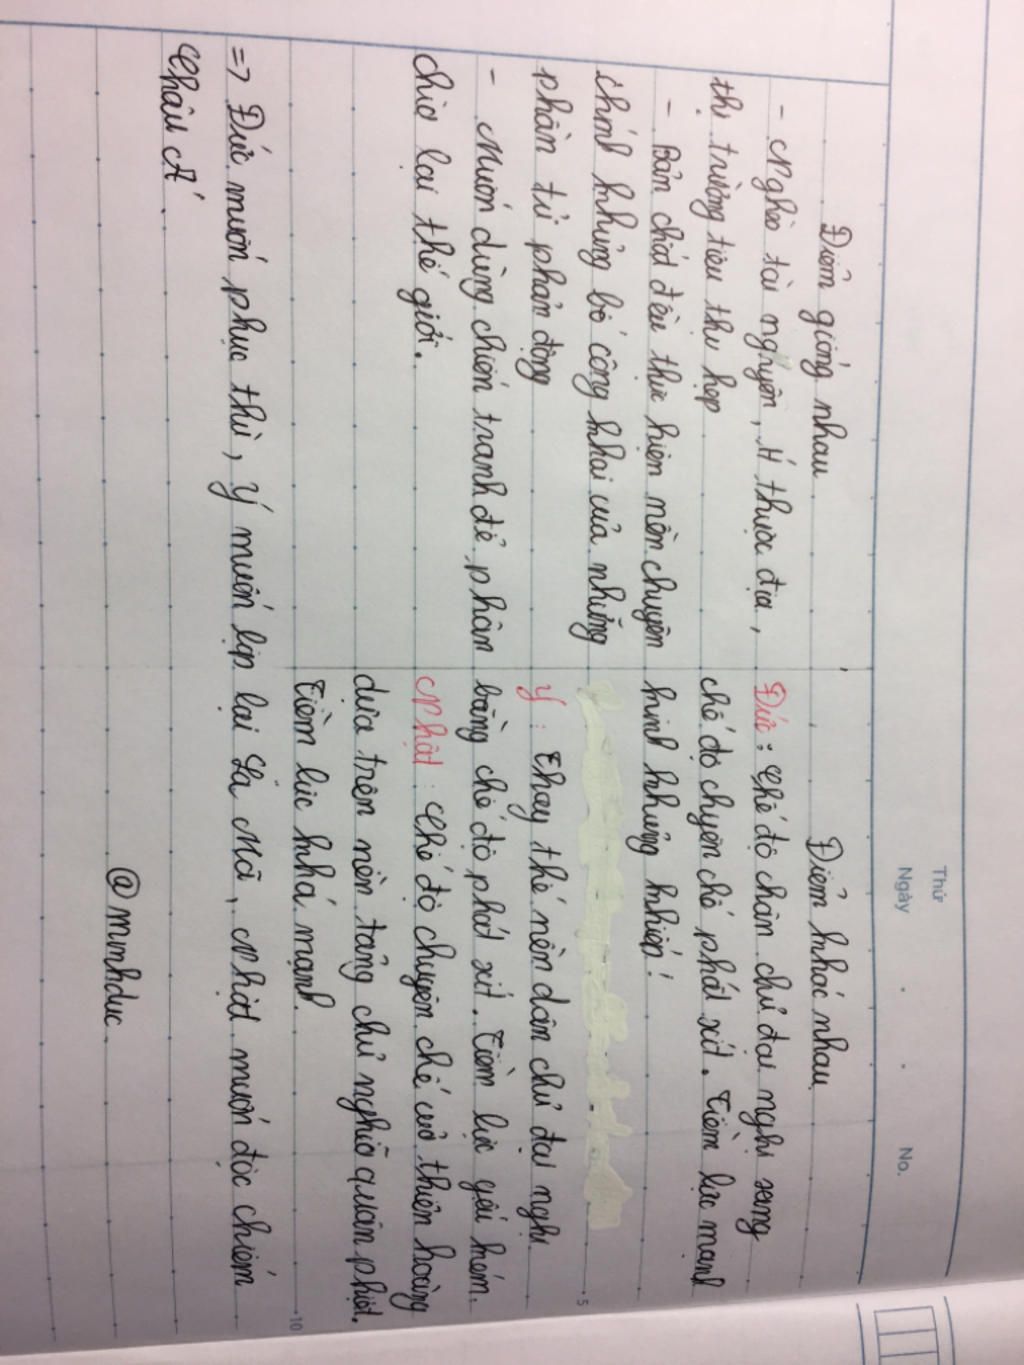 Thứ
Ngày
No.
Điểm giống nhau
- Nghèo tài nguyên, ít thuộc địa,
thị trường tiêu thụ hẹp
- Bản chất đều thực hiện nền chuyên
chính khủng bố công khai của những
phần tử phản động
- Muốn dùng chiến tranh để phân
chia lại thế giới.
Điểm khác nhau
Đức: Chế độ chân chủ đại nghị sang
chế độ chuyên chế phát xít. Tiềm lực mạnh
hinh khủng khiếp!
5
Ý: Thay thế nền dân chủ đại nghị
bằng chế độ phát xít. Tiềm lực yếu kém.
Nhật: Chế độ chuyên chế của thiên hoàng
dựa trên nền tảng chủ nghĩa quân phiệt.
Tiềm lực khá mạnh.
10
=> Đức muốn phục thù, Ý muốn lập lại La Mã, Nhật muốn độc chiếm
Châu Á.
@mmhduc